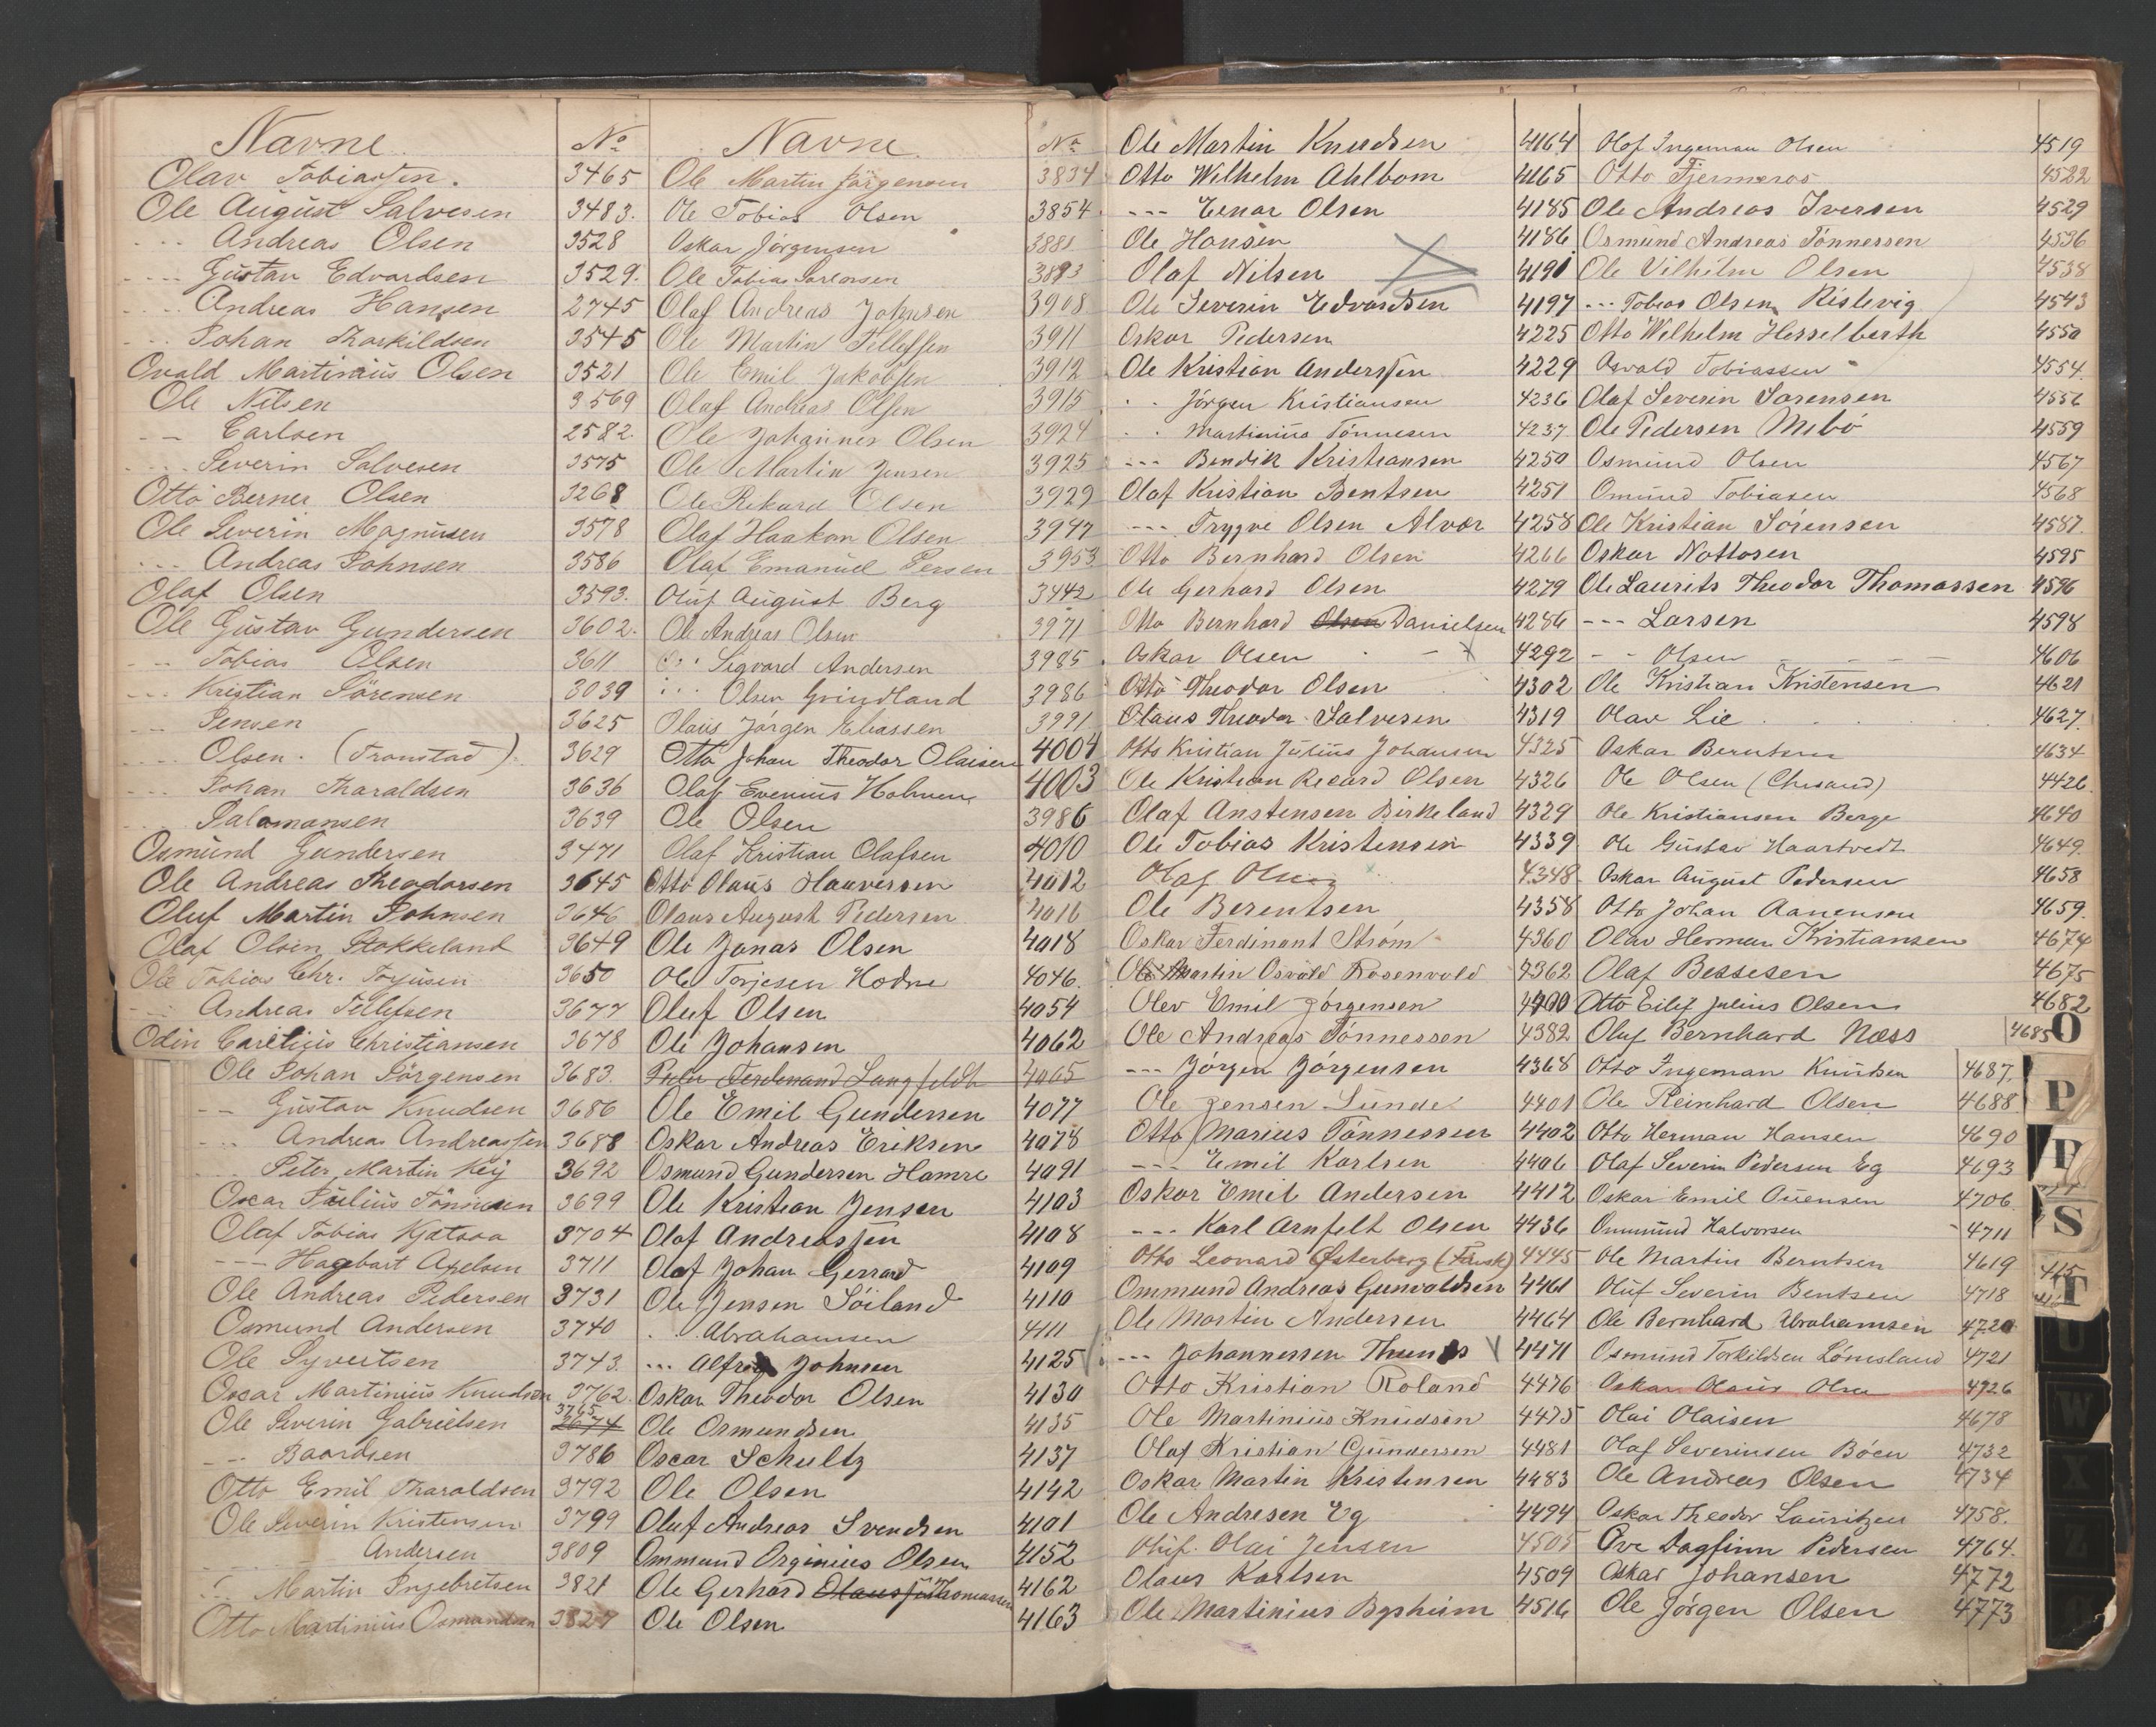 Navne. No
Olav Tobiassen. 3465
Ole August Salvesen 3483.
... Andreas Olsen 3528
... Gustav Edvardsen 3529.
... Andreas Hansen 2745
... Johan Thorkildsen 3545
Ovald Martinius Olsen 3521
Ole Nilsen 3569
-- Carlsen 2582
... Severin Salvesen 3575
Otto Berner Olsen 3268
Ole Severin Magnusen 3578
... Andreas Johnsen 3586
Olaf Olsen 3593.
Ole Gustav Gundersen 3602.
-- Tobias Olsen 3611
... Kristian Sörensen 3039
-- Jensen 3625
Olsen. (Tronstad) 3629
... Johan Tharaldsen 3636
... Salamonsen 3639
Osmund Gundersen 3471
Ole Andreas Theodorsen 3645
Oluf Martin Johnsen 3646
Olaf Olsen Stokkeland 3649
Ole Tobias Chr. 3650
-- Andreas Tellefsen 3677
Odin Christiansen 3678
Ole Johan Jörgensen 3683.
-- Gustav Knudsen 3686
... Andreas Andreassen 3688
... Peter Martin Keij 3692
Oscar Julius Tönnesen 3699
Olaf Tobias 3704
--- Hagbart Axelsen 3711
Ole Andreas Pedersen 3731
Osmund Andersen 3740
Ole Syvertsen 3743.
Oscar Martinius Knudsen 3762.
Ole Severin Gabrielsen 3765 3674
-- Baardsen 3786
Otto Emil Tharaldsen 3792
Ole Severin Kristensen 3799
Andersen 3809
... Martin Ingebretsen 3821
Otto Martinius Osmundsen 3827
Navne. No
Ole Martin Jörgensen 3834
Ole Tobias Olsen 3854
Oskar Jörgensen 3881
Ole Tobias 3893
Olaf Andreas Johnsen 3908
Ole Martin Tellefsen 3911
Ole Emil Jakobsen 3912
Olaf Andreas Olsen 3915
Ole Johannes Olsen 3924
Ole Martin Jensen 3925
Ole Rikard Olsen 3929
Olaf Haakon Olsen 3947
Olaf Emanuel Persen 3953
Oluf August Berg 3442
Ole Andreas Olsen 3971
... Sigvard Andersen 3985
... Olsen Grindland 3986
Olaus Jörgen Eliassen 3991
Otto Johan Theodor Olaisen 4004
Olaf Evenius Holmen 4003
Ole Olsen 3986
Olaf Kristian Olafsen 4010
Otto Olaus Haaversen 4012
Olaus August Pedersen 4016
Ole Jonas Olsen 4018
Ole Torjesen Hodne 4046.
Oluf Olsen 4054
Ole Johansen 4062
Ferdinand Langfeldt 4065
Ole Emil Gundersen 4077
Oskar Andreas Eriksen 4078
Osmund Gundersen Hamre 4091
Ole Kristian Jensen 4103
Olaf Andreassen 4108
Olaf Johan Gerrard 4109
Ole Jensen Söiland 4110
... Abrahamsen 4111
... Alfred Johnsen 4125
Oskar Theodor Olsen 4130
Ole Osmundsen 4135
Oscar Schultz 4137
Ole Olsen 4142
Oluf Andreas Svendsen 4101
Ommund Orginius Olsen 4152
Ole Gerhard Olaus Thomassen 4162
Ole Olsen 4163
Ole Martin Knudsen 4164
Otto Wilhelm Ahlbom 4165
--- Einar Olsen 4185
Ole Hansen 4186
Olaf Nilsen 4191
Ole Severin Edvardsen 4197
Oskar Pedersen 4225
Ole Kristian Anderssen 4229
.. Jörgen Kristiansen 4236
.. Martinius Tönnesen 4237
--- Bendik Kristiansen 4250
Olaf Kristian Bentsen 4251
--- Trygve Olsen Alvær 4258
Otto Bernhard Olsen 4266
Ole Gerhard Olsen 4279
Otto Bernhard Olsen Danielsen 4286
Oskar Olsen 4292
Otto Theodor Olsen 4302
Olaus Theodor Salvesen 4319
Otto Kristian Julius Johansen 4325
Ole Kristian Recard Olsen 4326
Olaf Anstensen Birkeland 4329
Ole Tobias Kristensen 4339
Olaf Olsen 4348
Ole Berentsen 4358
Oskar Ferdinant Strøm 4360
Ole Martin Osvald Rosenvold 4362
Olev Emil Jörgensen 4400
Ole Andreas Tönnessen 4382
--- Jörgen Jörgensen 4368
Ole Jensen Lunde 4401
Otto Marius Tönnessen 4402
--- Emil Karlsen 4406
Oskar Emil Andersen 4412
--- Karl Arnfelt Olsen 4436
Otto Leonard Østerberg (Finsk) 4445
Ommund Andreas Gunvaldsen 4461
Ole Martin Andersen 4464
--- Johannessen 4471
Otto Kristian Roland 4476
Ole Martinius Knudsen 4475
Olaf Kristian Gundersen 4481
Oskar Martin Kristensen 4483
Ole Andresen Eg 4494
Oluf Olai Jensen 4505
Olaus Karlsen 4509
Ole Martinius Bysheim 4516
Olof Ingeman Olsen 4519
Otto Fjermeros 4522
Ole Andreas Iversen 4529
Osmund Andreas Tönnessen 4536
Ole Vilhelm Olsen 4538
... Tobias Olsen Risløvig 4543
Otto Wilhelm Hesselberth 4550
Osvald Tobiassen 4554.
Olaf Severin Sørensen 4556
Ole Pedersen Mebö 4559
Osmund Olsen 4567
Omund Tobiasen 4568
Ole Kristian Sörensen 4587.
Oskar Nottosen 4595
Ole Laurits Theodor Thomassen 4596
--- Larsen 4598
-- Olsen 4606
Ole Kristian Kristensen 4621
Olav Lie 4627.
Oskar Berntsen 4634
Ole Olsen (Chrsand) 4426
Ole Kristiansen Berge 4640
Ole Gustav Haartvedt 4649.
Oskar August Pedersen 4658
Otto Johan Aanensen 4659
Olav Herman Kristiansen 4674
Olaf Bessesen 4675
Otto Eilif Julius Olsen 4682
Oluf Bernhard Næss 4685
Otto Ingeman Knudsen 4687.
Ole Reinhard Olsen 4688
Otto Herman Hansen 4690
Olaf Severin Pedersen Eg 4693
Oskar Emil Ouensen 4706
Ommund Halvorsen 4711
Ole Martin Berntsen 4619
Oluf Severin Bentsen 4718
Ole Bernhard Abrahamsen 4720
Osmund Torkildsen Lönesland 4721
Oskar Olaus Olsen 4726
Olai Olaisen 4678
Olaf Severinsen Böen 4732
Ole Andreas Olsen 4734
Oskar Theodor Lauritzen 4758.
Ove Dagfinn Pedersen 4764.
Oskar Johansen 4772
Ole Jörgen Olsen 4773
O
P
S
T
U
W
X
Z